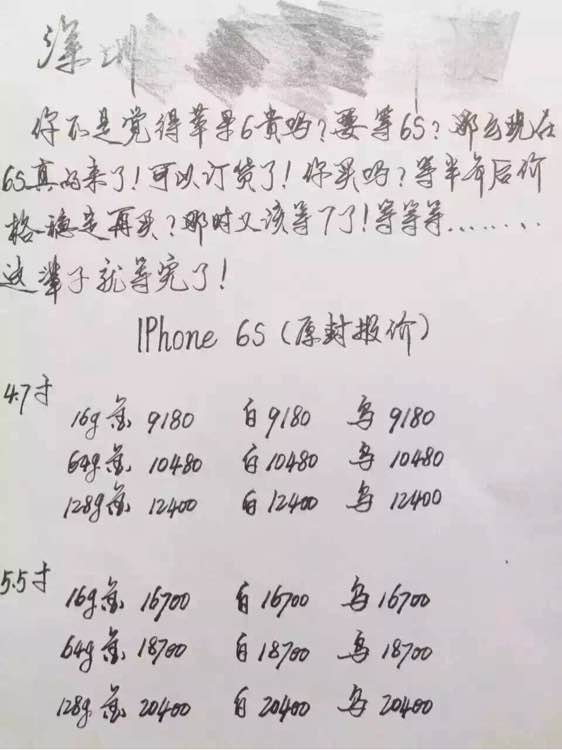 深圳
你不是觉得苹果6贵吗?要等6S?那么现在
6S真的来了!可以订货了!你买吗?等半年后价
格稳定再买?那时又该等7了!等等等........
这辈子就等完了!
IPhone 6S(原封报价)
4.7寸
16g金 9180 白9180 乌9180
64g金 10480 白10480 乌10480
128g金 12400 白12400 乌12400
5.5寸
16g金 16700 白16700 乌16700
64g金 18700 白18700 乌18700
128g金 20400 白20400 乌20400